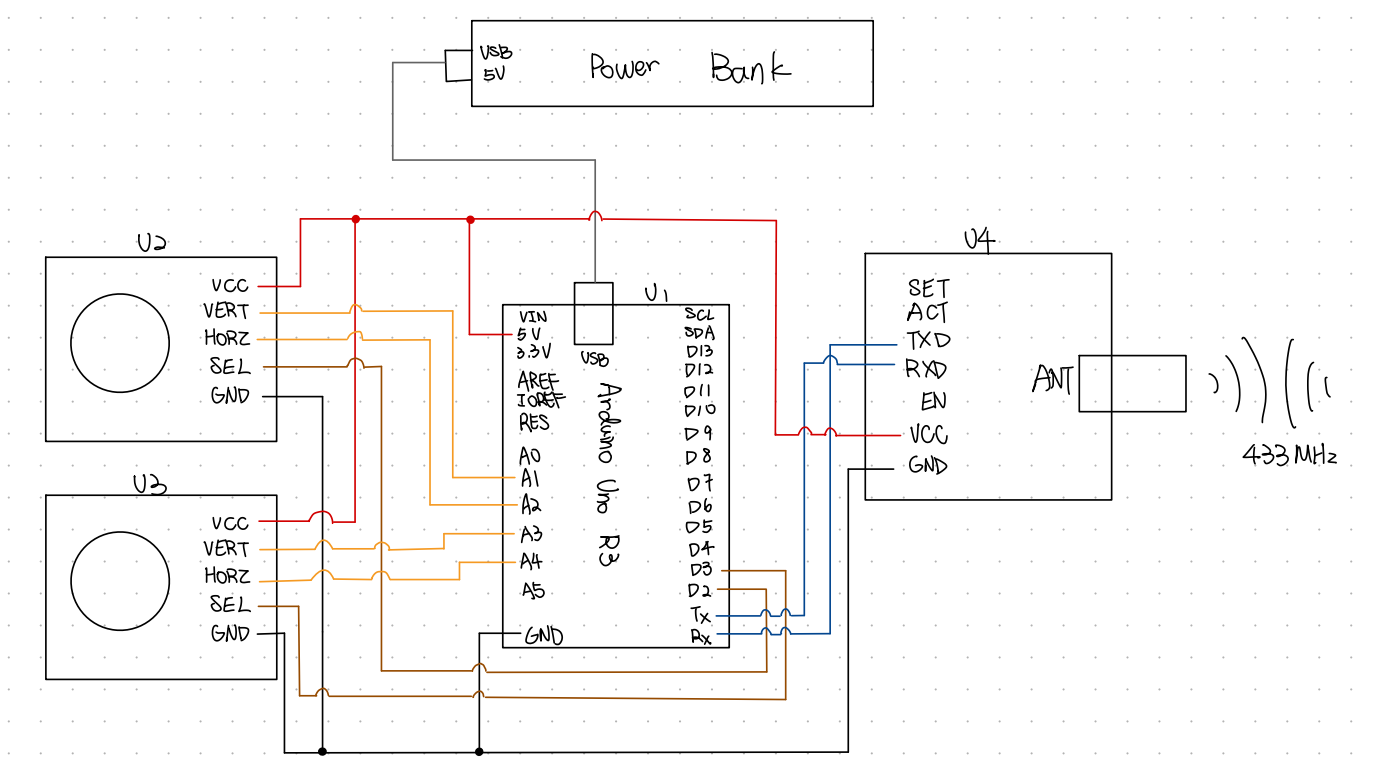 USB
5V
Power Bank
U2
VCC
VERT
HORZ
SEL
GND
U3
VCC
VERT
HORZ
SEL
GND
U1
VIN
5V
3.3V
AREF
IOREF
RES
A0
A1
A2
A3
A4
A5
GND
USB
Arduino Uno R3
SCL
SDA
D13
D12
D11
D10
D9
D8
D7
D6
D5
D4
D3
D2
Tx
Rx
U4
SET
ACT
TXD
RXD
EN
VCC
GND
ANT
433MHz